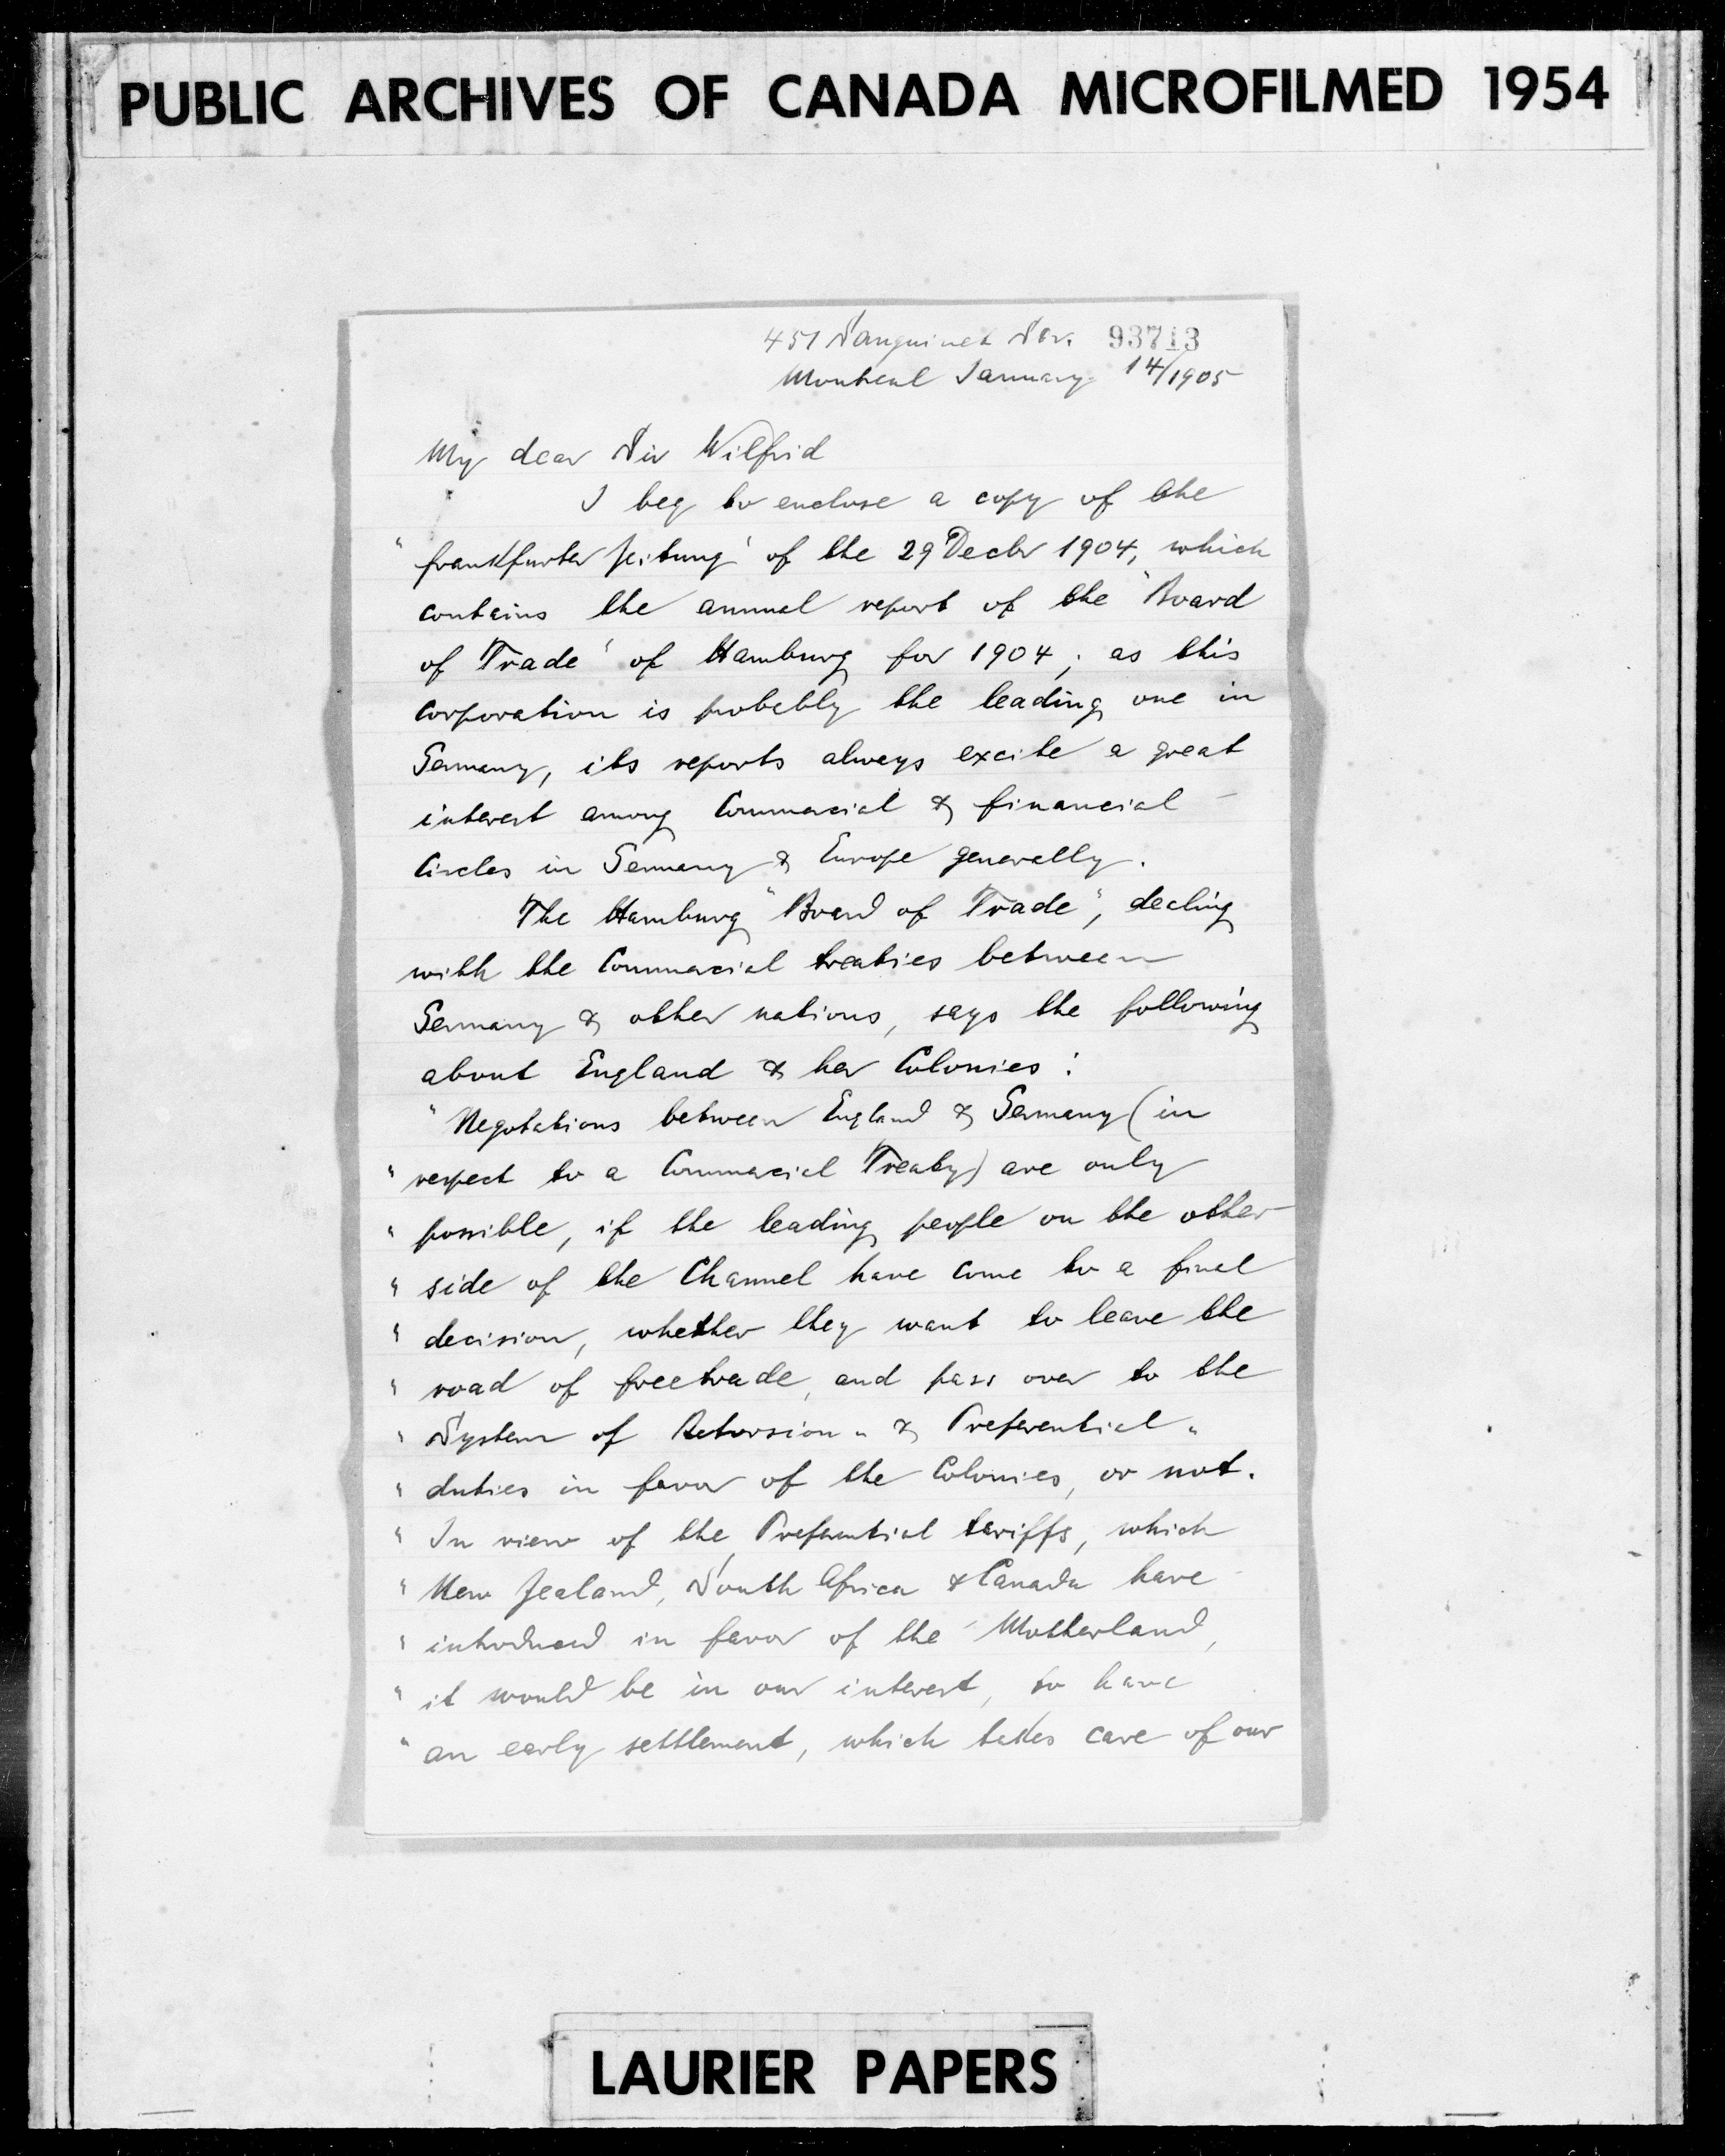 PUBLIC ARCHIVES OF CANADA MICROFILMED 1954
451 Sanguinet Str. 93713
Montreal January 14/1905
My dear Sir Wilfrid
I beg to enclose a copy of the
"frankfurter Zeitung" of the 29 Decbr 1904, which
contains the annual report of the "Board
of Trade" of Hamburg for 1904; as this
corporation is probably the leading one in
Germany, its reports always excite a great
interest among Commercial & financial
Circles in Germany & Europe generally.
The Hamburg "Board of Trade", dealing
with the Commercial treaties between
Germany & other nations, says the following
about England & her Colonies:
"Negotations between England & Germany (in
" respect to a Commercial Treaty) are only
" possible, if the leading people on the other
" side of the Channel have come to a final
" decision, whether they want to leave the
" road of freetrade, and pass over to the
" System of Retorsion - & Preferential -
" duties in favor of the Colonies, or not.
" In view of the Preferential tariffs, which
" New Zealand, South Africa & Canada have
" introduced in favor of the Motherland,
" it would be in our interest, to have
" an early settlement, which takes care of our
LAURIER PAPERS